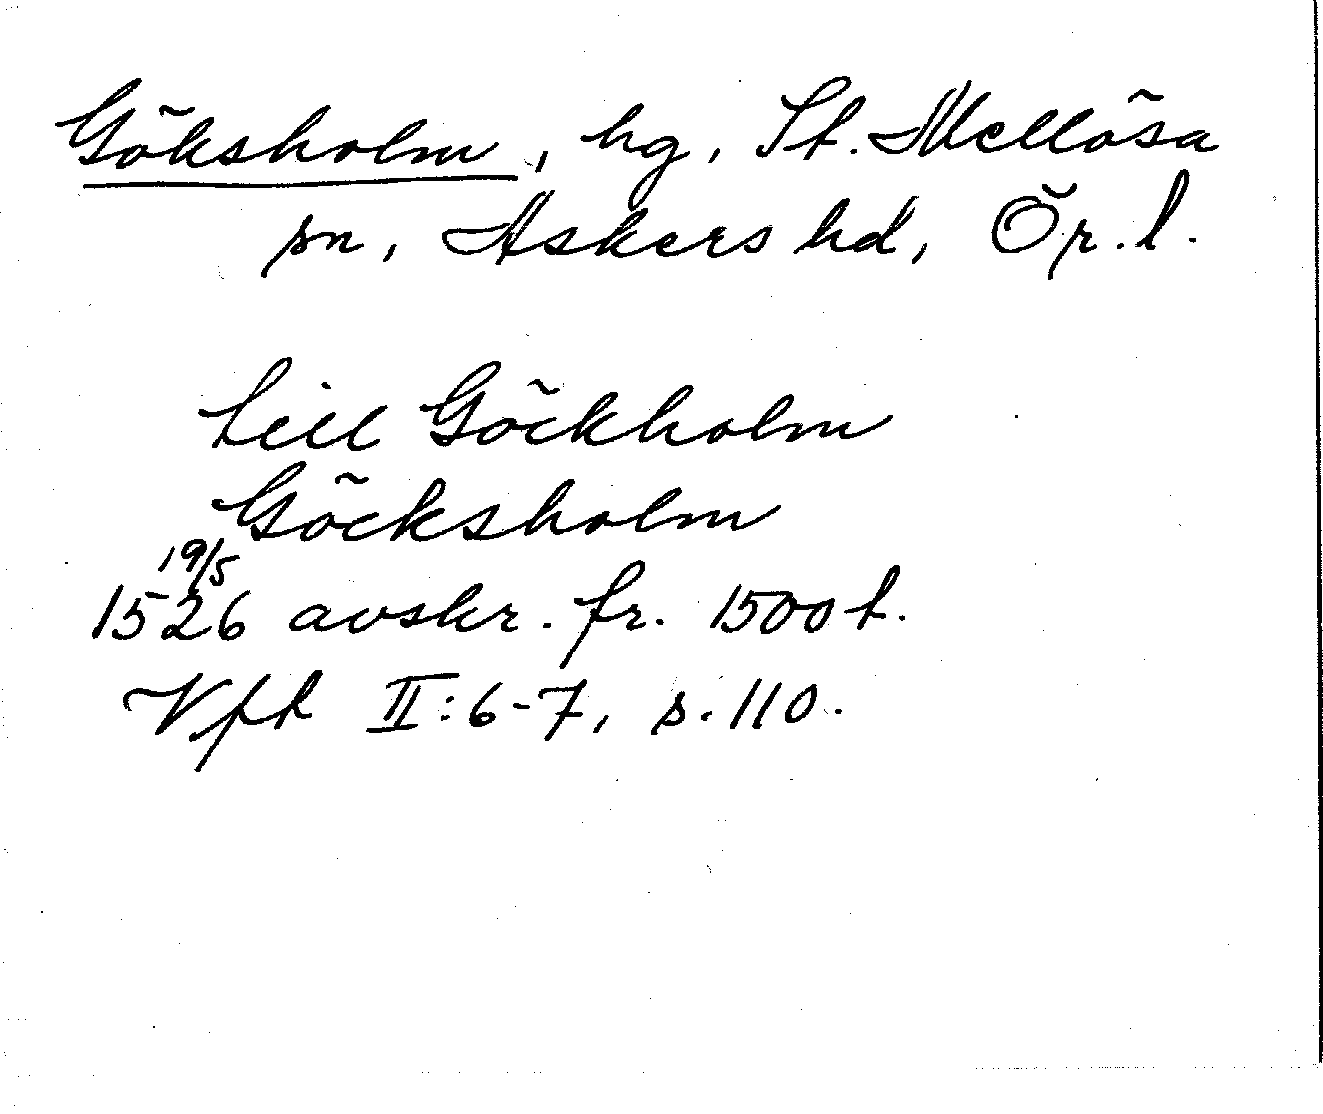 Göksholm, hg, St. Mellösa
sn, Askers hd, Ör. l.
till Göckholm
Göcksholm
19/5
1526 avskr. fr. 1500 t.
Vfh II:6-7, s. 110.